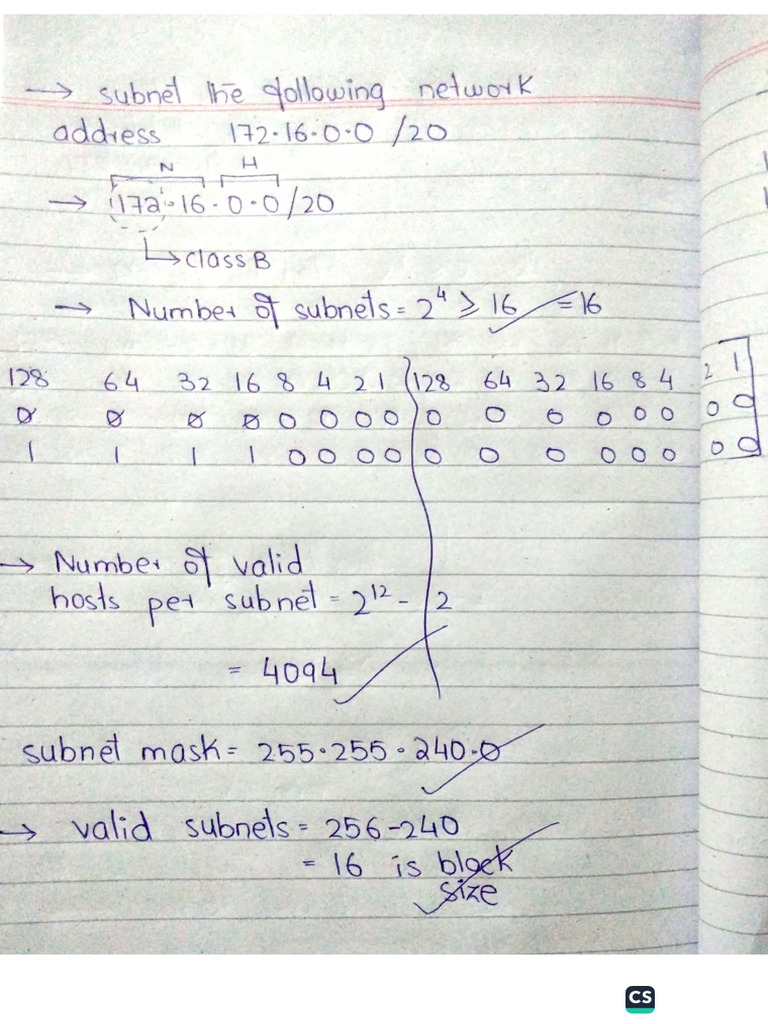 → subnet the following network
address 172.16.0.0 /20
N H
→ 172.16.0.0/20
↳ class B
→ Number of subnets = 2⁴ ≥ 16 = 16
128 64 32 16 8 4 2 1 128 64 32 16 8 4 2 1
0 0 0 0 0 0 0 0 0 0 0 0 0 0 0 0
1 1 1 1 0 0 0 0 0 0 0 0 0 0 0 0
→ Number of valid
hosts per subnet = 2¹² - 2
= 4094
subnet mask = 255.255.240.0
→ valid subnets = 256-240
= 16 is block
size
CS